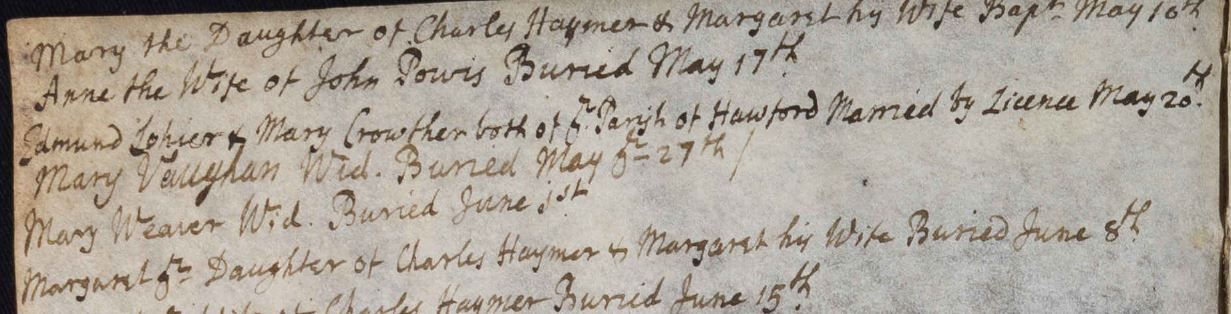 Mary the Daughter of Charles Haymer & Margaret his Wife Bapt. May 10th
Anne the Wife of John Powis Buried May 17th
Edmund & Mary Crowther both of ye. Parish of Hawford Married by Licence May 20th.
Mary Vaughan Wid. Buried May ye 27th
Mary Weaver Wid. Buried June 1st
Margaret ye Daughter of Charles Haymer & Margaret his Wife Buried June 8th
of Charles Haymer Buried June 15th